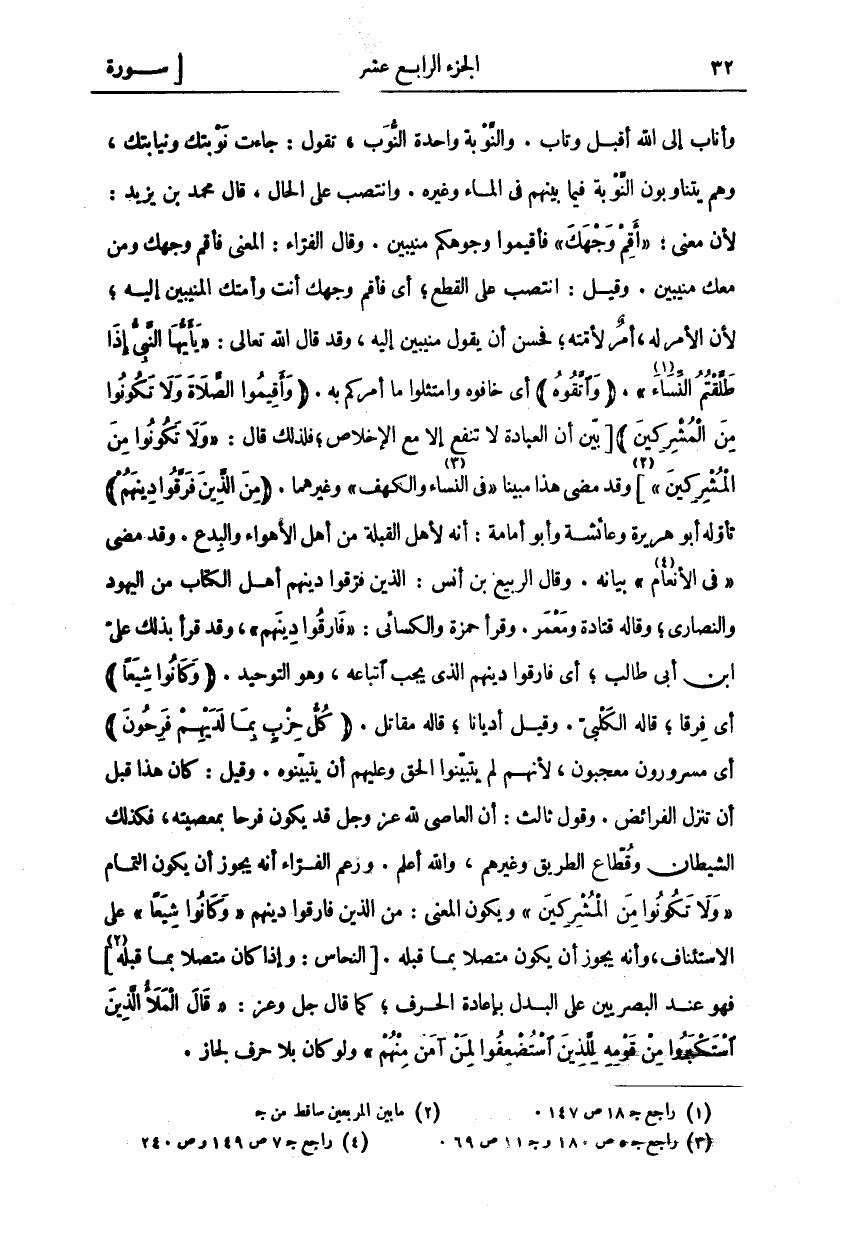 ٣٢ الجزء الرابع عشر [ سـورة
وأناب إلى الله أقبل وتاب . والنَّوْبة واحدة النُّوَب ، تقول : جاءت نَوْبتك ونيابتك ،
وهم يتناوبون النَّوْبة فيما بينهم فى الماء وغيره . وانتصب على الحال ، قال محمد بن يزيد :
لأن معنى : «أَقِمْ وَجْهَكَ» فأقيموا وجوهكم منيبين . وقال الفرّاء : المعنى فأقم وجهك ومن
معك منيبين . وقيل : انتصب على القطع؛ أى فأقم وجهك أنت وأمتك المنيبين إليه ؛
لأن الأمر له ، أمرٌ لأمته؛ فحسن أن يقول منيبين إليه ، وقد قال الله تعالى : «يَأَيُّهَا النَّبِىُّ إِذَا
طَلَّقْتُمُ النِّسَاء» (١) . ﴿ وَٱتَّقُوهُ ﴾ أى خافوه وامتثلوا ما أمركم به . ﴿ وَأَقِيمُوا الصَّلَاةَ وَلَا تَكُونُوا
مِنَ الْمُشْرِكِينَ ﴾ [ بيّن أن العبادة لا تنفع إلا مع الإخلاص؛ فلذلك قال : «وَلَا تَكُونُوا مِنَ
الْمُشْرِكِينَ» ] (٢) وقد مضى هذا مبينا «فى النساء والكهف» (٣) وغيرهما . ﴿مِنَ الَّذِينَ فَرَّقُوا دِينَهُمْ﴾
تأوّله أبو هريرة وعائشة وأبو أمامة : أنه لأهل القبلة من أهل الأهواء والبِدع . وقد مضى
« فى الأنعام (٤) » بيانه . وقال الربيع بن أنس : الذين فرّقوا دينهم أهل الكتاب من اليهود
والنصارى؛ وقاله قتادة ومَعْمَر . وقرأ حمزة والكسائى : «فَارقُوا دِينَهم» ، وقد قرأ بذلك علىّ
ابن أبى طالب ؛ أى فارقوا دينهم الذى يجب ٱتباعه ، وهو التوحيد . ﴿ وَكَانُوا شِيَعًا ﴾
أى فِرقا ؛ قاله الكَلْبىّ . وقيل أديانا ؛ قاله مقاتل . ﴿ كُلُّ حِزْبٍ بِمَا لَدَيْهِمْ فَرِحُونَ ﴾
أى مسرورون معجبون ، لأنهم لم يتبيّنوا الحق وعليهم أن يتبيّنوه . وقيل : كان هذا قبل
أن تنزل الفرائض . وقول ثالث : أن العاصى لله عز وجل قد يكون فرحا بمعصيته ، فكذلك
الشيطان وقُطّاع الطريق وغيرهم ، والله أعلم . وزعم الفرّاء أنه يجوز أن يكون التمام
«وَلَا تَكُونُوا مِنَ الْمُشْرِكِينَ» ويكون المعنى : من الذين فارقوا دينهم «وَكَانُوا شِيَعًا» على
الاستئناف، وأنه يجوز أن يكون متصلا بما قبله . [ النحاس : وإذا كان متصلا بما قبله ] (٢)
فهو عند البصريين على البدل بإعادة الحرف ؛ كما قال جل وعز : « قَالَ الْمَلَأُ الَّذِينَ
ٱسْتَكْبَرُوا مِنْ قَوْمِهِ لِلَّذِينَ ٱسْتُضْعِفُوا لِمَنْ آمَنَ مِنْهُمْ» ولو كان بلا حرف لجاز .
(١) راجع جـ ١٨ ص ١٤٧ . (٢) ما بين المربعين ساقط من جـ
(٣) راجع جـ ٥ ص ١٨٠ و جـ ١١ ص ٦٩ . (٤) راجع جـ ٧ ص ١٤٩ وص ٢٤٠